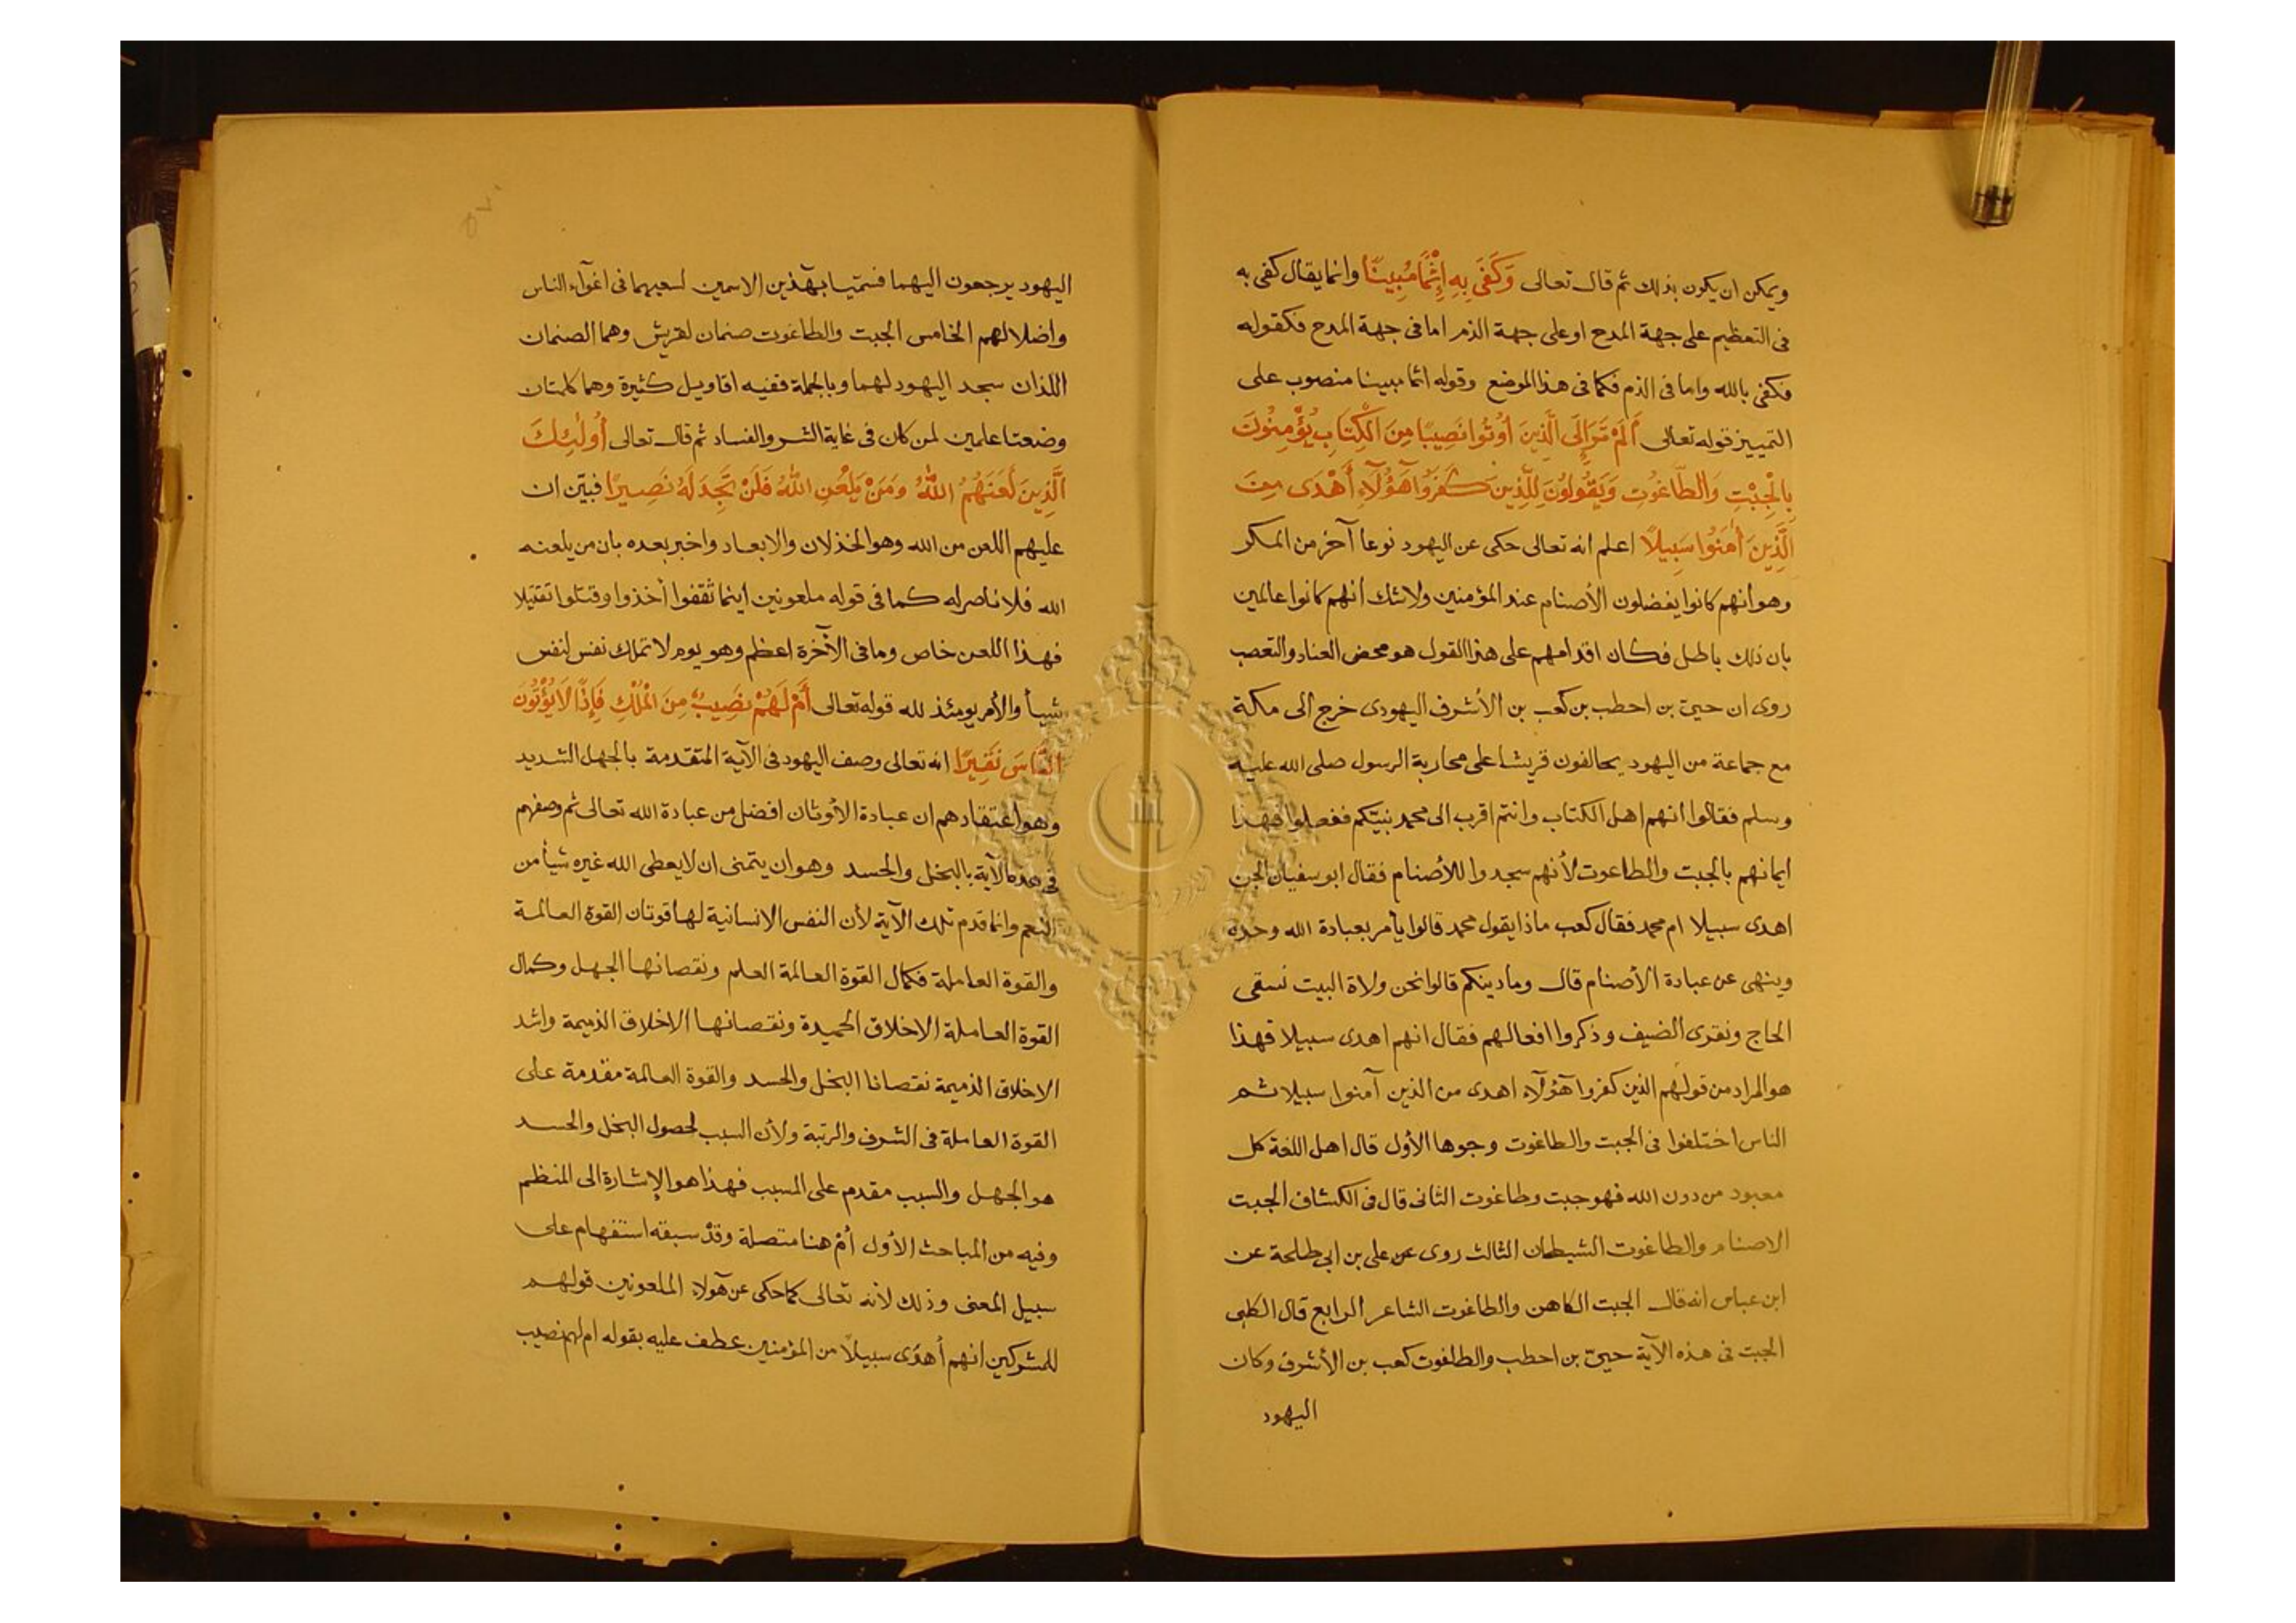 ويمكن ان يكون بذلك ثم قال تعالى وَكَفَى بِهِ إِثْمًا مُبِينًا وانما يقال كفى به
فى التعظيم على جهة المدح او على جهة الذم اما فى جهة المدح فكقوله
فكفى بالله واما فى الذم فكما فى هذا الموضع وقوله اثما مبينا منصوب على
التمييز قوله تعالى أَلَمْ تَرَ إِلَى الَّذِينَ أُوتُوا نَصِيبًا مِنَ الْكِتَابِ يُؤْمِنُونَ
بِالْجِبْتِ وَالطَّاغُوتِ وَيَقُولُونَ لِلَّذِينَ كَفَرُوا هَؤُلَآءِ أَهْدَى مِنَ
الَّذِينَ أٰمَنُوا سَبِيلًا اعلم انه تعالى حكى عن اليهود نوعا آخر من المكر
وهو أنهم كانوا يفضلون الأصنام عند المؤمنين ولا شك أنهم كانوا عالمين
بان ذلك باطل فكان اقدامهم على هذا القول هو محض العناد والتعصب
روى ان حيىّ بن احطب بن كعب بن الأشرف اليهودى خرج الى مكة
مع جماعة من اليهود يحالفون قريشا على محاربة الرسول صلى الله عليه
وسلم فقالوا أنهم اهل الكتاب وانتم اقرب الى محمد نبيّكم ففعلوا فهذا
ايمانهم بالجبت والطاعوت لأنهم سجدوا للأصنام فقال ابو سفيان الجن
اهدى سبيلا ام محمد فقال كعب ماذا يقول محمد قالوا يأمر بعبادة الله وحده
وينهى عن عبادة الأصنام قال وما دينكم قالوا نحن ولاة البيت نسقى
الحاج ونقرى الضيف وذكروا افعالهم فقال انهم اهدى سبيلا فهذا
هو المراد من قولهم الذين كفروا هؤلآء اهدى من الذين آمنوا سبيلا ثم
الناس اختلفوا فى الجبت والطاغوت وجوها الأول قال اهل اللغة كل
معبود من دون الله فهو جبت وطاغوت الثانى قال فى الكشاف الجبت
الاصنام والطاغوت الشيطان الثالث روى عن على بن ابى طلحة عن
ابن عباس انه قال الجبت الكاهن والطاغوت الشاعر الرابع قال الكلبى
الجبت فى هذه الآية حيىّ بن احطب والطاغوت كعب بن الأشرف وكان
اليهود
اليهود يرجعون اليهما فسمّيا بهٰذين الاسمين لسعيهما فى اغوآء الناس
واضلالهم الخامس الجبت والطاغوت صنمان لقريش وهما الصنمان
اللذان سجد اليهود لهما وبالجملة ففيه اقاويل كثيرة وهما كلمتان
وضعتا علمين لمن كان فى غاية الشر والفساد ثم قال تعالى أُولٰئِكَ
الَّذِينَ لَعَنَهُمُ اللّٰهُ وَمَنْ يَلْعَنِ اللّٰهُ فَلَنْ تَجِدَ لَهُ نَصِيرًا فبيّن ان
عليهم اللعن من الله وهو الخذلان والابعاد واخبر بعده بان من يلعنه
الله فلا ناصر له كما فى قوله ملعونين اينما ثقفوا أخذوا وقتلوا تقتيلا
فهذا اللعن خاص وما فى الآخرة اعظم وهو يوم لا تملك نفس لنفس
شيأ والأمر يومئذ لله قوله تعالى أَمْ لَهُمْ نَصِيبٌ مِنَ الْمُلْكِ فَإِذًا لَا يُؤْتُونَ
النَّاسَ نَقِيرًا انه تعالى وصف اليهود فى الآية المتقدمة بالجهل الشديد
وهو اعتقادهم ان عبادة الأوثان افضل من عبادة الله تعالى ثم وصفهم
فى هذه الآية بالبخل والحسد وهو ان يتمنى ان لا يعطى الله غيره شيأ من
النعم وانما قدم تلك الآية لأن النفس الانسانية لها قوتان القوة العالمة
والقوة العاملة فكمال القوة العالمة العلم ونقصانها الجهل وكمال
القوة العاملة الاخلاق الحميدة ونقصانها الاخلاق الذميمة واشد
الاخلاق الذميمة نقصانا البخل والحسد والقوة العالمة مقدمة على
القوة العاملة فى الشرف والرتبة ولأن السبب لحصول البخل والحسد
هو الجهل والسبب مقدم على المسبب فهذا هو الإشارة الى المنظم
وفيه من المباحث الأول أمْ هنا متصلة وقدْ سبقه استفهام على
سبيل المعنى وذلك لأنه تعالى كما حكى عن هٰولاء الملعونين قولهم
للمشركين انهم أهدَى سبيلًا من المؤمنين عطف عليه بقوله ام لهم نصيب